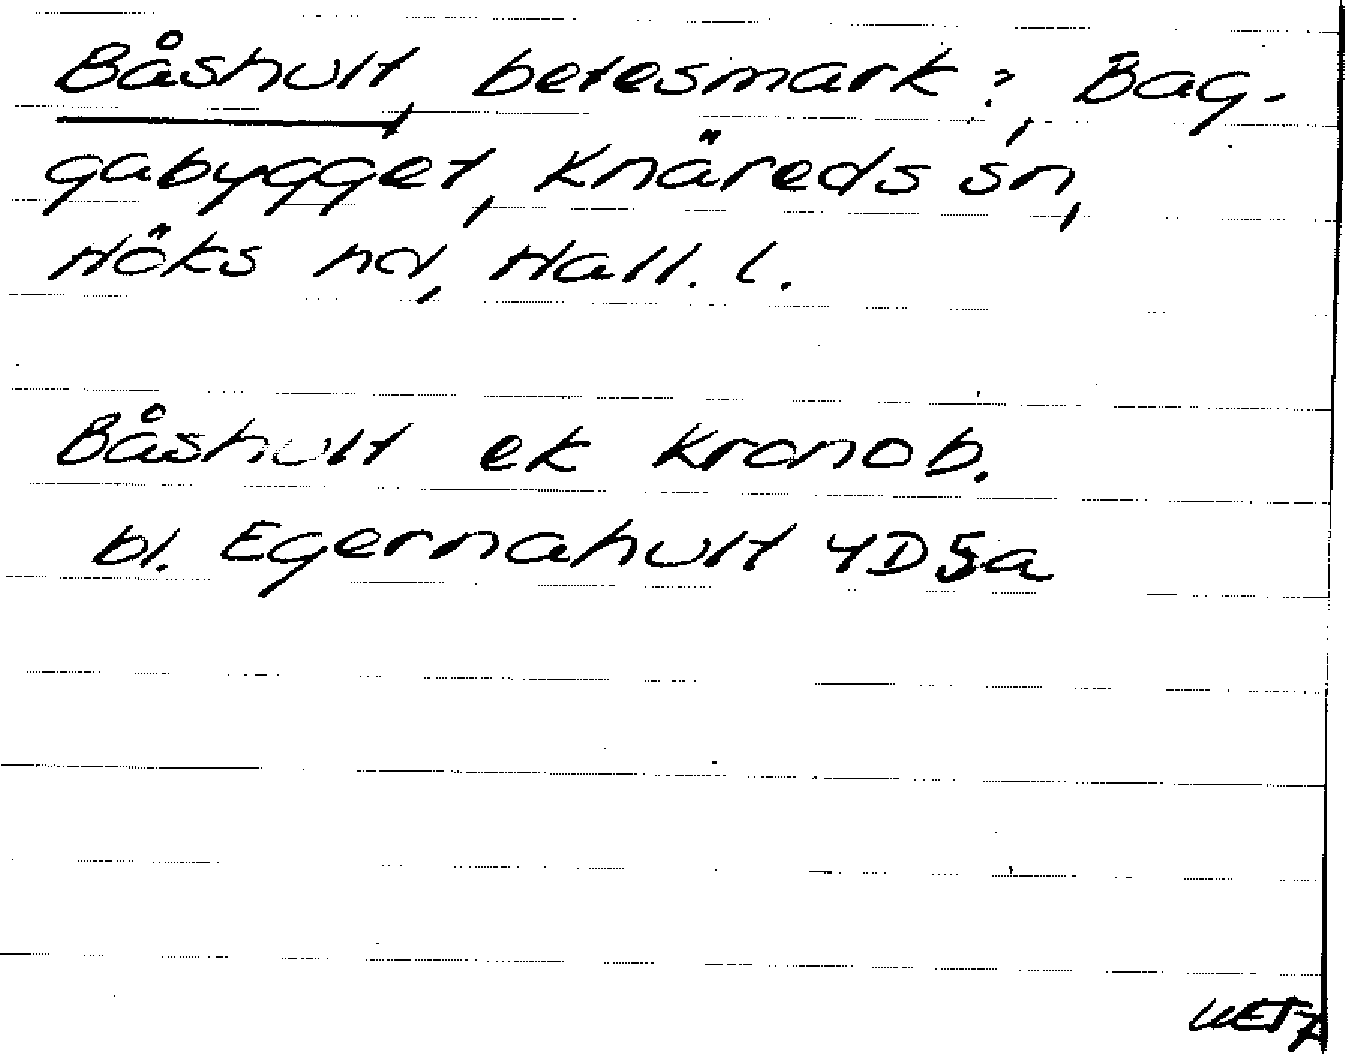 Båshult, betesmark?, Bag-
gabygget, Knäreds sn,
Höks hd, Hall. l.
Båshult ek Kronob.
bl. Egernahult 4D5a